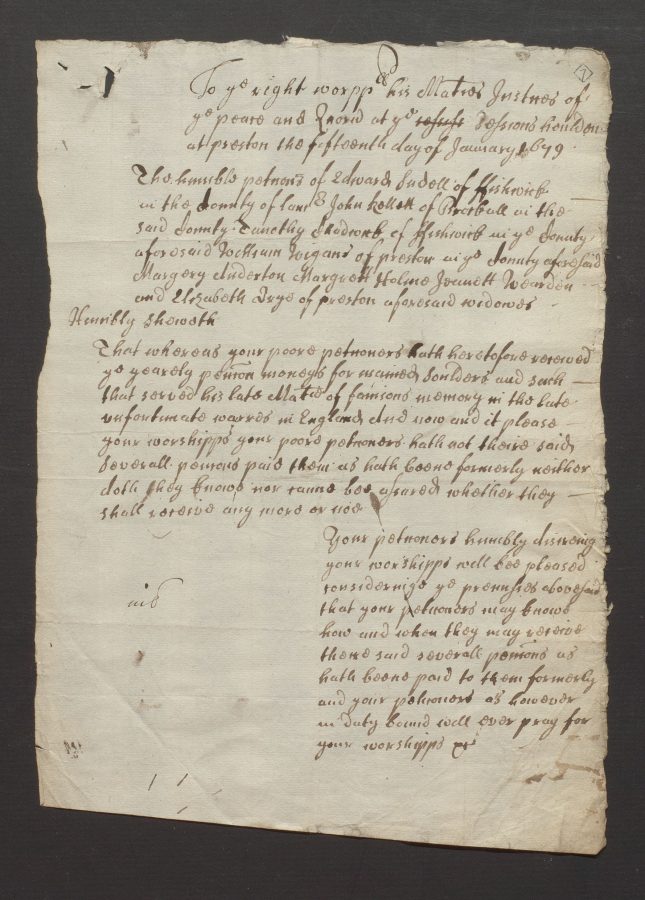 To ye right worppll his Maties Justices of
ye peace and Quorū at ye Sessions houlden
at preston the fifteenth day of January 1679
The humble peticons of Edward Sudell of ffishwick
in the County of Lancr John Kellett of Brockall in the
said County Timothy Chadwick of ffishwick in ye County
aforesaid William Wigans of preston in ye County aforesaid
Margery Anderton Margrett Holme Jennett Wearden
and Elizabeth Crye of preston aforesaid widowes
Humbly sheweth
That whereas your poore peticoners hath heretofore received
ye yearely pencon moneys for maimed Souldiers and such
that served his late Matie of famious memory in the late
unfortunate warres in England And now and it please
your worshipps your poore peticoners hath not theire said
severall pencons paid them as hath beene formerly neither
doth they knowe nor canne bee assured whether they
shall receive any more or noe
Your peticoners humbly disireing
your worshipps will bee pleased
considerings ye premisses abovesaid
that your peticoners may knowe
how and when they may receive
there said severall pencons as
hath beene paid to them formerly
and your peticoners as however
in duty bound will ever pray for
your worshipps &c
nil